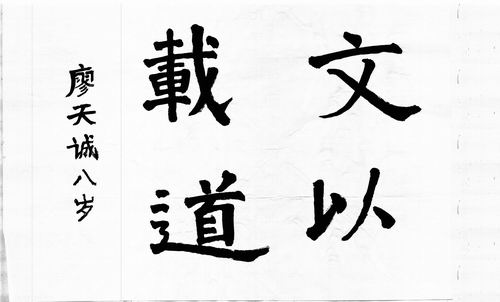 文以
載道
廖天诚八岁